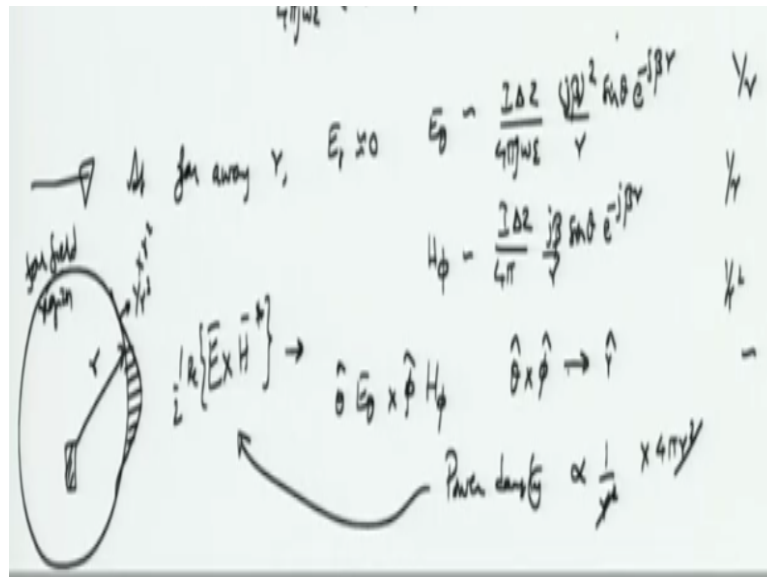 4πjωε
At far away r, E_r ≃ 0 E_θ ~ IΔz/4πjωε (jβ)²/r sinθ e^{-jβr} 1/r
H_ϕ ~ IΔz/4π jβ/r sinθ e^{-jβr} 1/r
far field
region
1/r² × r²
1/r²
r
1/2 Re{E̅ × H̅*} → θ̂ E_θ × ϕ̂ H_ϕ θ̂ × ϕ̂ → r̂ -
Power density ∝ 1/r² × 4πr²